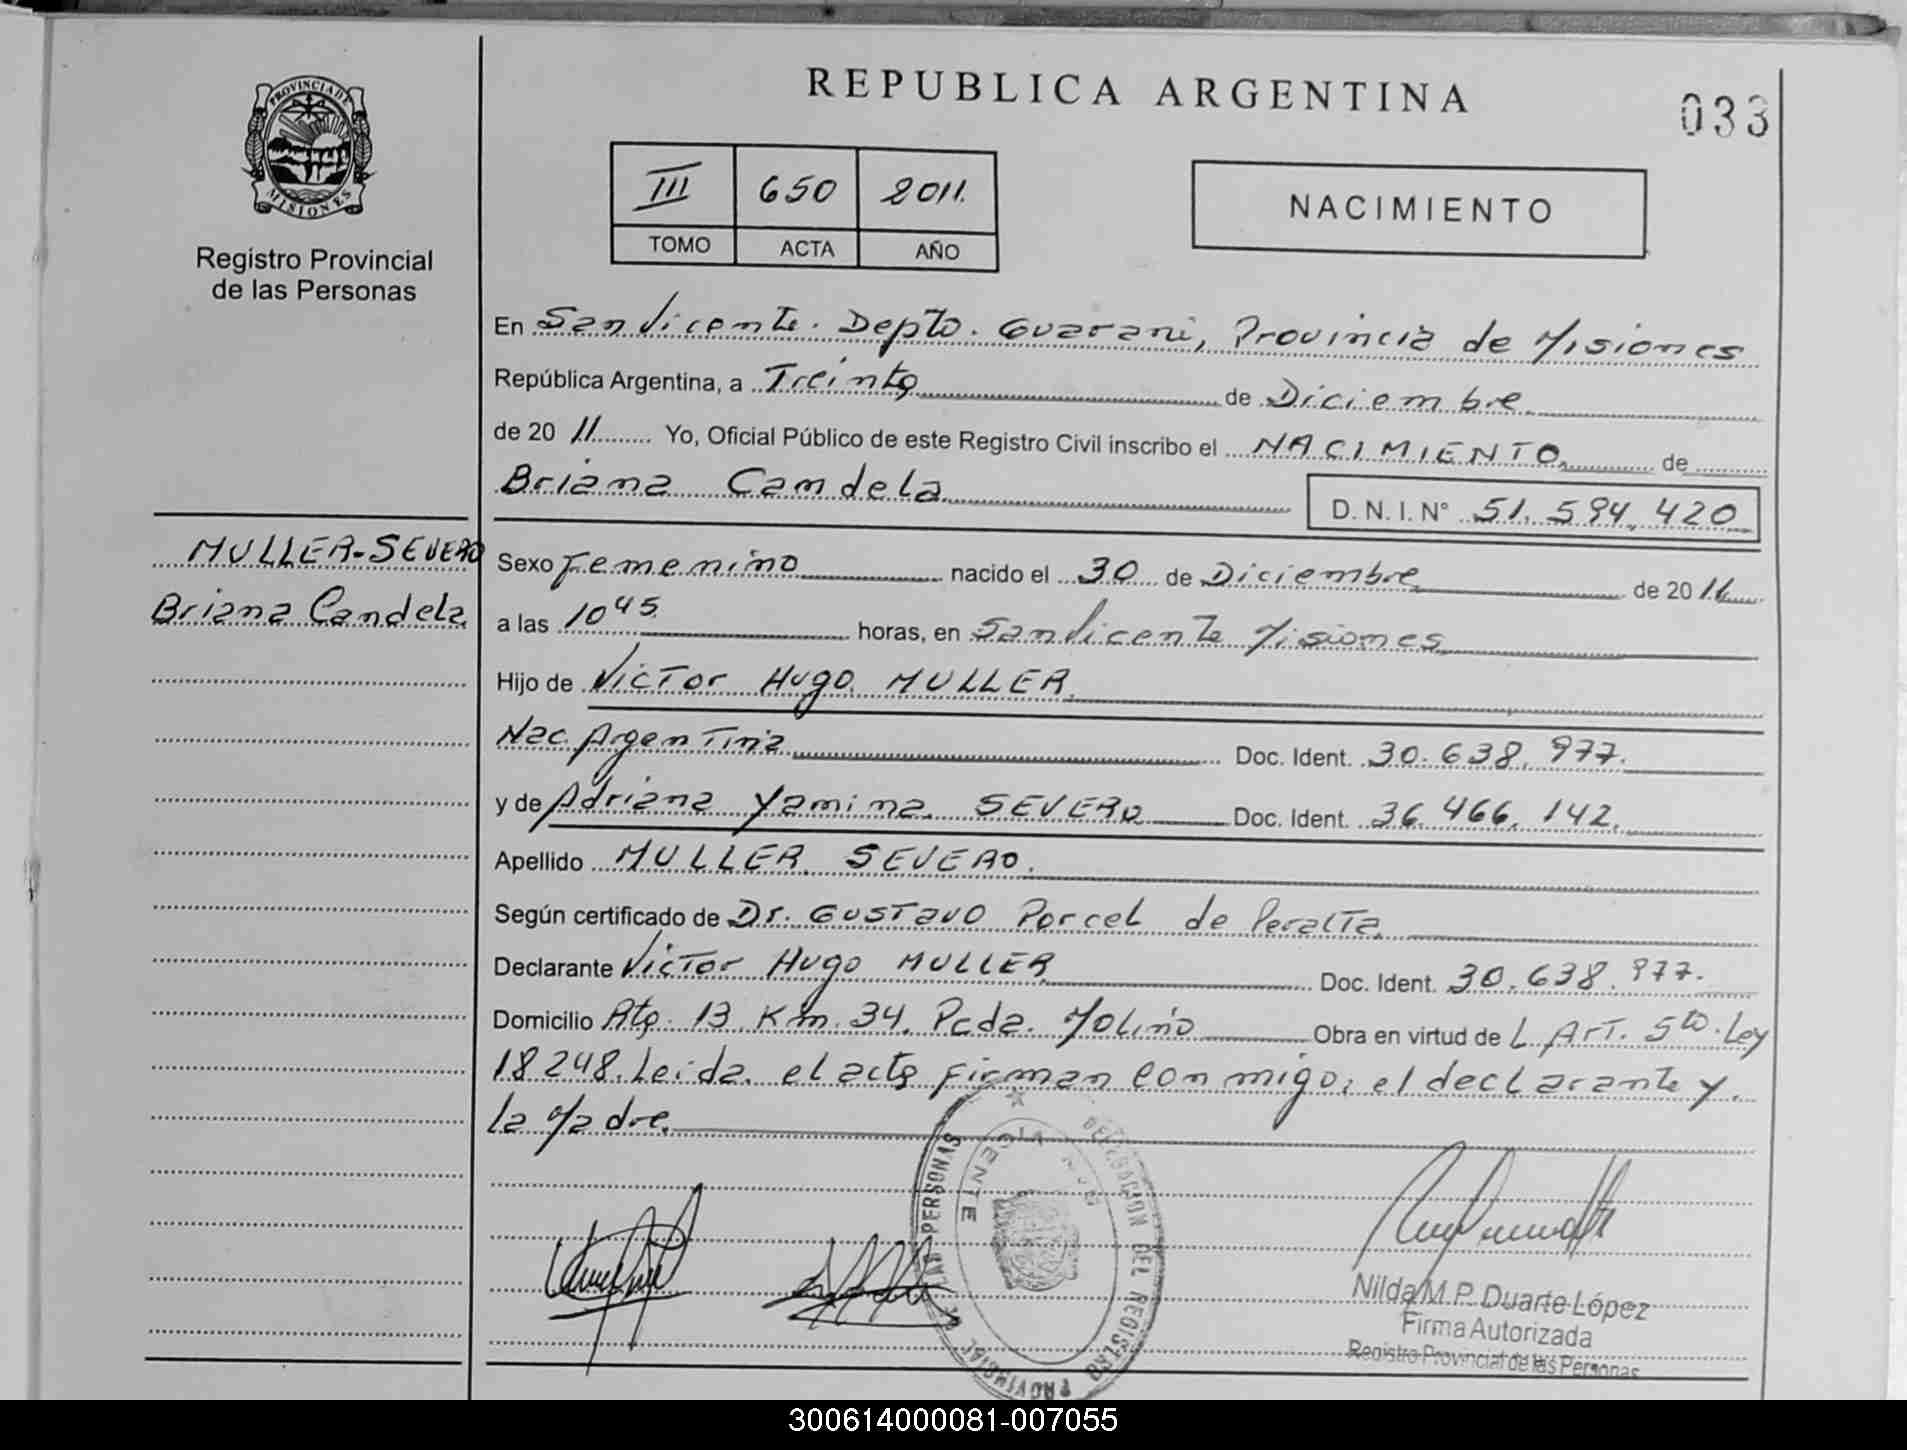 REPUBLICA ARGENTINA
033
PROVINCIA DE
MISIONES
Registro Provincial
de las Personas
III 650 2011.
TOMO ACTA AÑO
NACIMIENTO
En San Vicente. Depto. Guarani, Provincia de Misiones
República Argentina, a Treinta de Diciembre
de 20 11 Yo, Oficial Público de este Registro Civil inscribo el NACIMIENTO de
Briana Candela D.N.I.N° 51.594.420
MULLER-SEVERO
Briana Candela
Sexo Femenino nacido el 30 de Diciembre de 20 11
a las 10 45 horas, en San Vicente Misiones
Hijo de Victor Hugo MULLER
Nac. Argentina Doc. Ident. 30.638.977.
y de Adriana Yamina SEVERO Doc. Ident. 36.466.142.
Apellido MULLER SEVERO.
Según certificado de Dr. Gustavo Porcel de Peralta
Declarante Victor Hugo MULLER Doc. Ident. 30.638.977.
Domicilio Rta. 13 Km. 34. Pcda. Molino Obra en virtud de L Art. 5to. Ley
18248. Leida el acta firman conmigo, el declarante y
la Madre.
DELEGACION DEL REGISTRO PROVINCIAL DE LAS PERSONAS
Nilda M. P. Duarte López
Firma Autorizada
Registro Provincial de las Personas
300614000081-007055